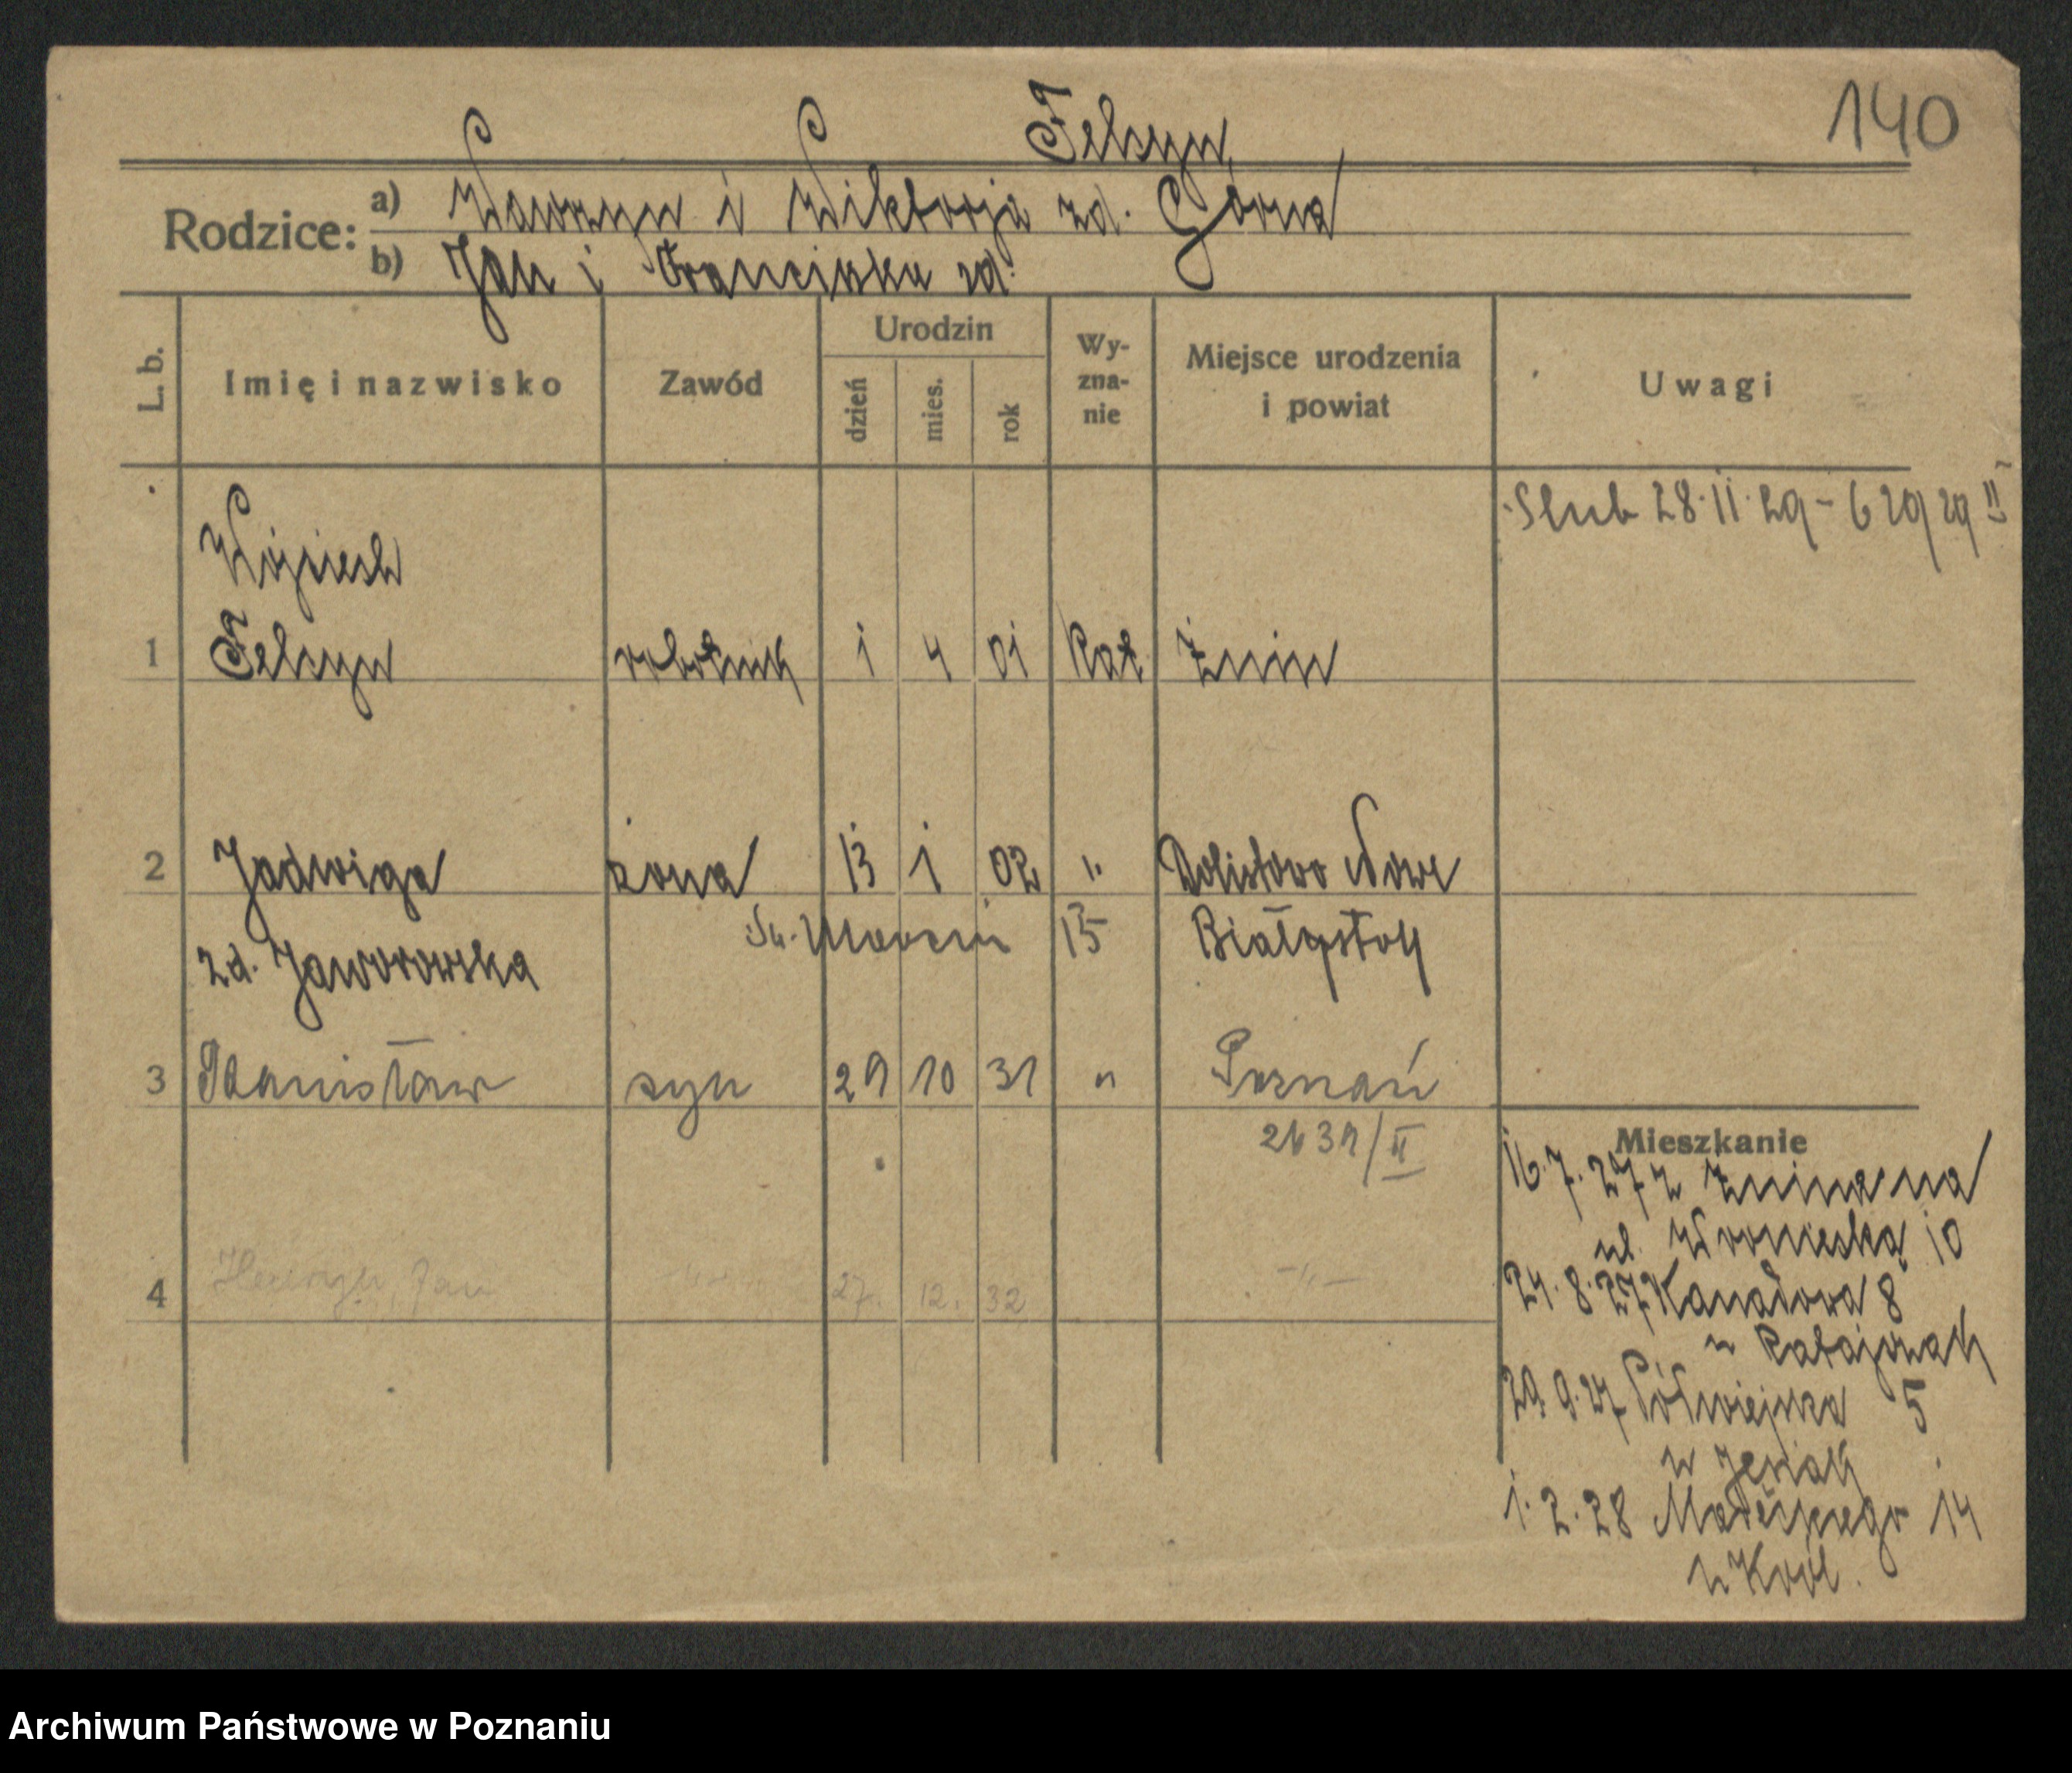 140
Felcyn
Rodzice: a) Wawrzyn i Wiktorja zd. Górna
b) Jan i Franciszka zd.
L. b.
Imię i nazwisko
Zawód
Urodzin
dzień
mies.
rok
Wy-
zna-
nie
Miejsce urodzenia
i powiat
Uwagi
Ślub 28.11.29 -
Wojciech
1 Felcyn robotnik 1 4 01 kat Żnin
2 Jadwiga żona 13 1 02 " Dolistowo Nowe
zd. Jaworowska Św. Marcin 15 Białystok
3 Stanisław syn 29 10 31 " Poznań
/II
4 Henryk, Jan -"- 27. 12. 32 -"-
Mieszkanie
16.7.27 z Żnina na
ul. Wroniecką 10
24.8.27 Kanałowa 8
u Ratajczak
29.9.27 Półwiejska 5
1.2.28 14
u Król.
Archiwum Państwowe w Poznaniu